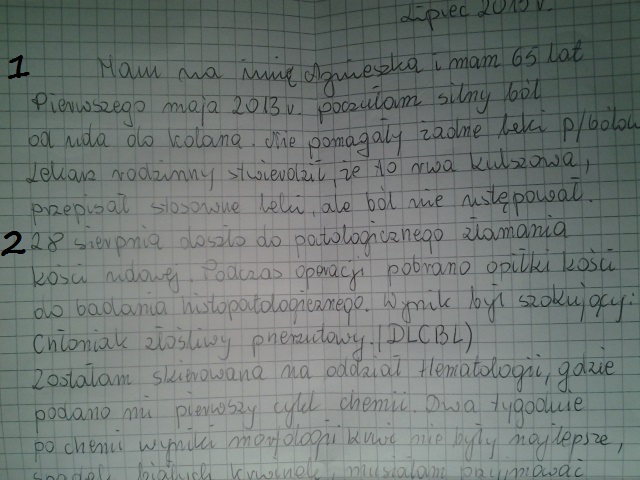 Lipiec 2015 r.
1 Mam na imię Agnieszka i mam 65 lat
Pierwszego maja 2013 r. poczułam silny ból
od uda do kolana. Nie pomagały żadne leki p/bólow
Lekarz rodzinny stwierdził, że to rwa kulszowa,
przepisał stosowne leki, ale ból nie ustępował.
2 28 sierpnia doszło do patologicznego złamania
kości udowej. Podczas operacji pobrano opiłki kości
do badania histopatologicznego. Wynik był szokujący:
Chłoniak złośliwy przerzutowy. (DLCBL)
Zostałam skierowana na oddział Hematologii, gdzie
podano mi pierwszy cykl chemii. Dwa tygodnie
po chemii wyniki morfologii krwi nie były najlepsze,
spadek białych krwinek, musiałam przyjmować